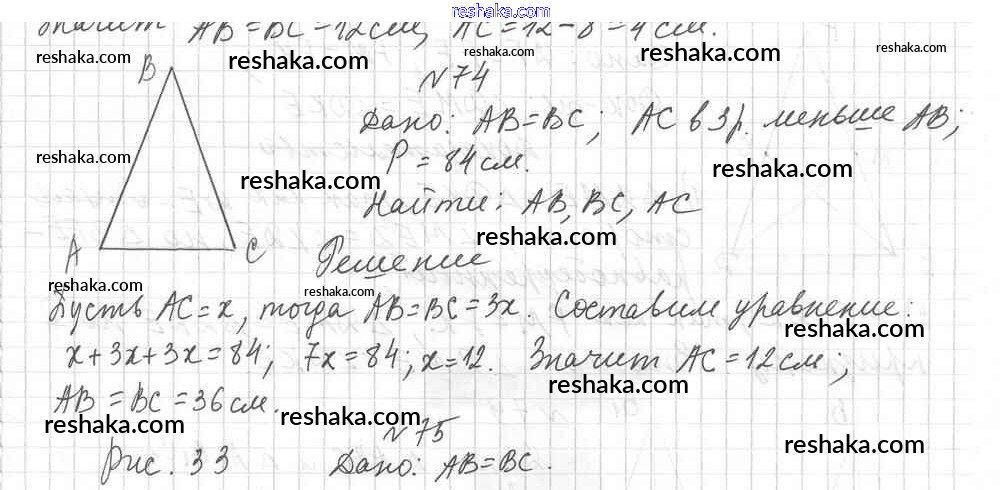 reshaka.com
Значит AB=BC=12см, AC=12-8=4см.
reshaka.com reshaka.com reshaka.com reshaka.com reshaka.com
B N74
Дано: AB=BC; AC в 3 р. меньше AB;
reshaka.com P=84см. reshaka.com
reshaka.com
Найти: AB, BC, AC
reshaka.com
A C Решение
reshaka.com reshaka.com
Пусть AC=x, тогда AB=BC=3x. Составим уравнение:
reshaka.com
x+3x+3x=84; 7x=84; x=12. Значит AC=12см;
reshaka.com reshaka.com
AB=BC=36см.
reshaka.com reshaka.com
N75
reshaka.com
Рис. 33 Дано: AB=BC.